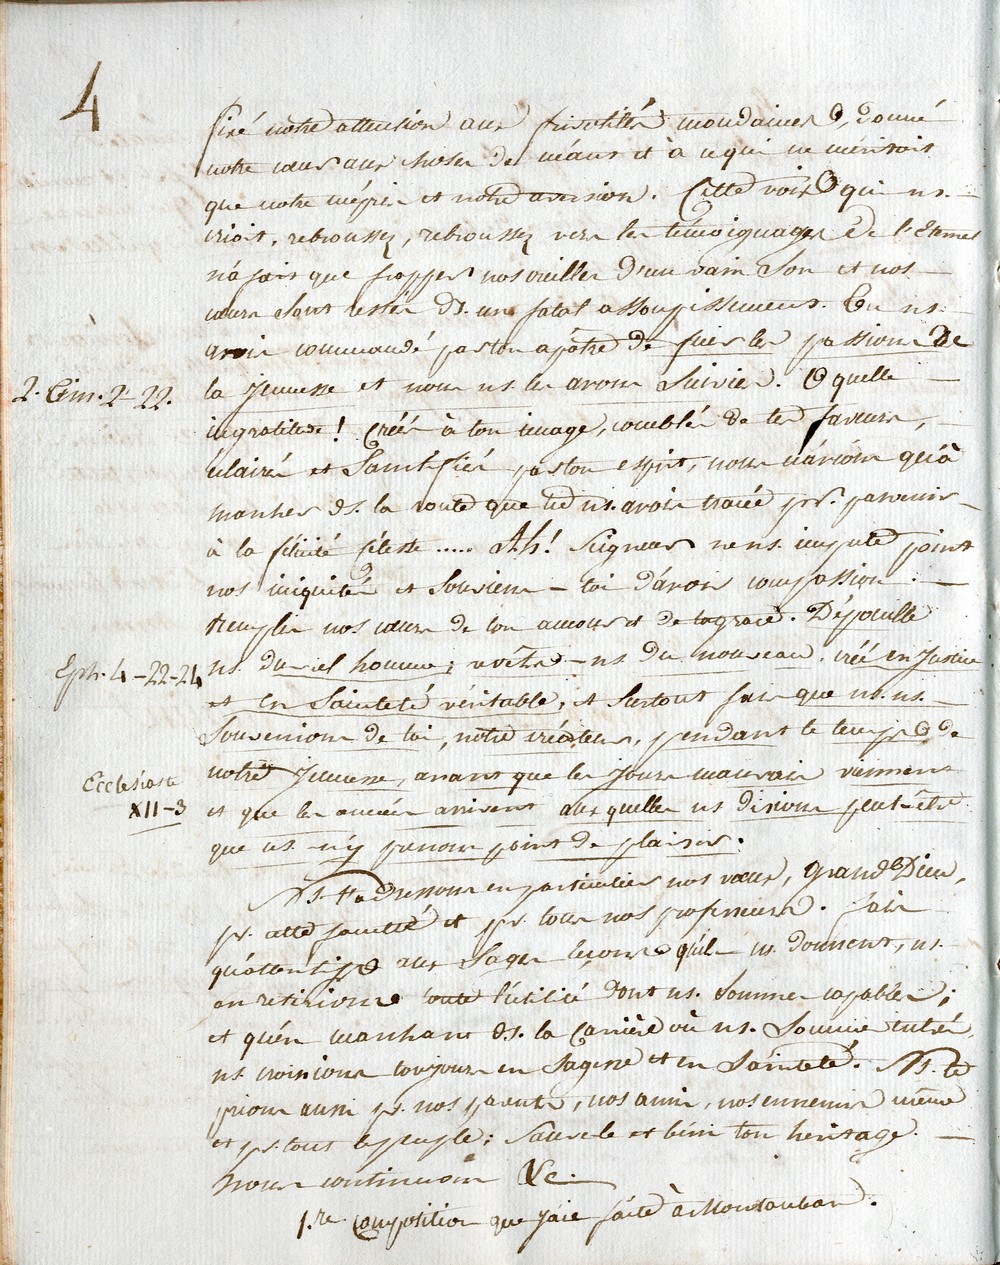 4
fixé notre attention aux frivolités mondaines, donné
notre cœur aux choses de néant et à ce qui ne méritoit
que notre mépris et notre aversion. Cette voix qui ns.
crioit, rebroussez, rebroussez vers les témoignages de l'Eternel
n'a fait que frapper nos oreilles d'un vain son et nos
cœurs sont restés ds. un fatal assoupissement. Tu ns.
avois commandé par ton apôtre de fuir les passions de
2. Tim. 2. 22.
la jeunesse et nous ns les avons suivies. O quelle
ingratitude! Créés à ton image, comblés de tes faveurs,
éclairés et sanctifiés par ton esprit, nous n'avions qu'à
marcher ds. la route que tu ns. avois tracée pr. parvenir
à la félicité céleste ..... Ah! Seigneur ne ns. impute point
nos iniquités et souviens-toi d'avoir compassion.
Remplis nos cœurs de ton amour et de ta grace. Dépouille
Eph. 4-22-24
ns. du viel homme; revêts-ns du nouveau, créé en justice
et en sainteté véritable, et surtout fais que ns. ns.
souvenions de toi, notre créateur, pendant le temps de
Ecclésiaste
XII-3
notre jeunesse, avant que les jours mauvais viennent
et que les années arrivent auxquelles ns disions peut-être
que ns n'y prenons point de plaisir.
Ns. t'adressons en particulier nos vœux, Grand Dieu,
pr. cette faculté et pr. tous nos professeurs. Fais
qu'attentifs aux sages leçons qu'ils ns. donnent, ns.
en retirions toute l'utilité dont ns. sommes capables;
et qu'en marchant ds. la carrière où ns. sommes entrés
ns. croissions toujours en sagesse et en sainteté. Ns. te
prions aussi pr. nos parents, nos amis, nos ennemis même
et pr. tout le peuple; sauve le et béni ton héritage.
Nous continuons &c.
1.re composition que j'aie faite à Montauban.